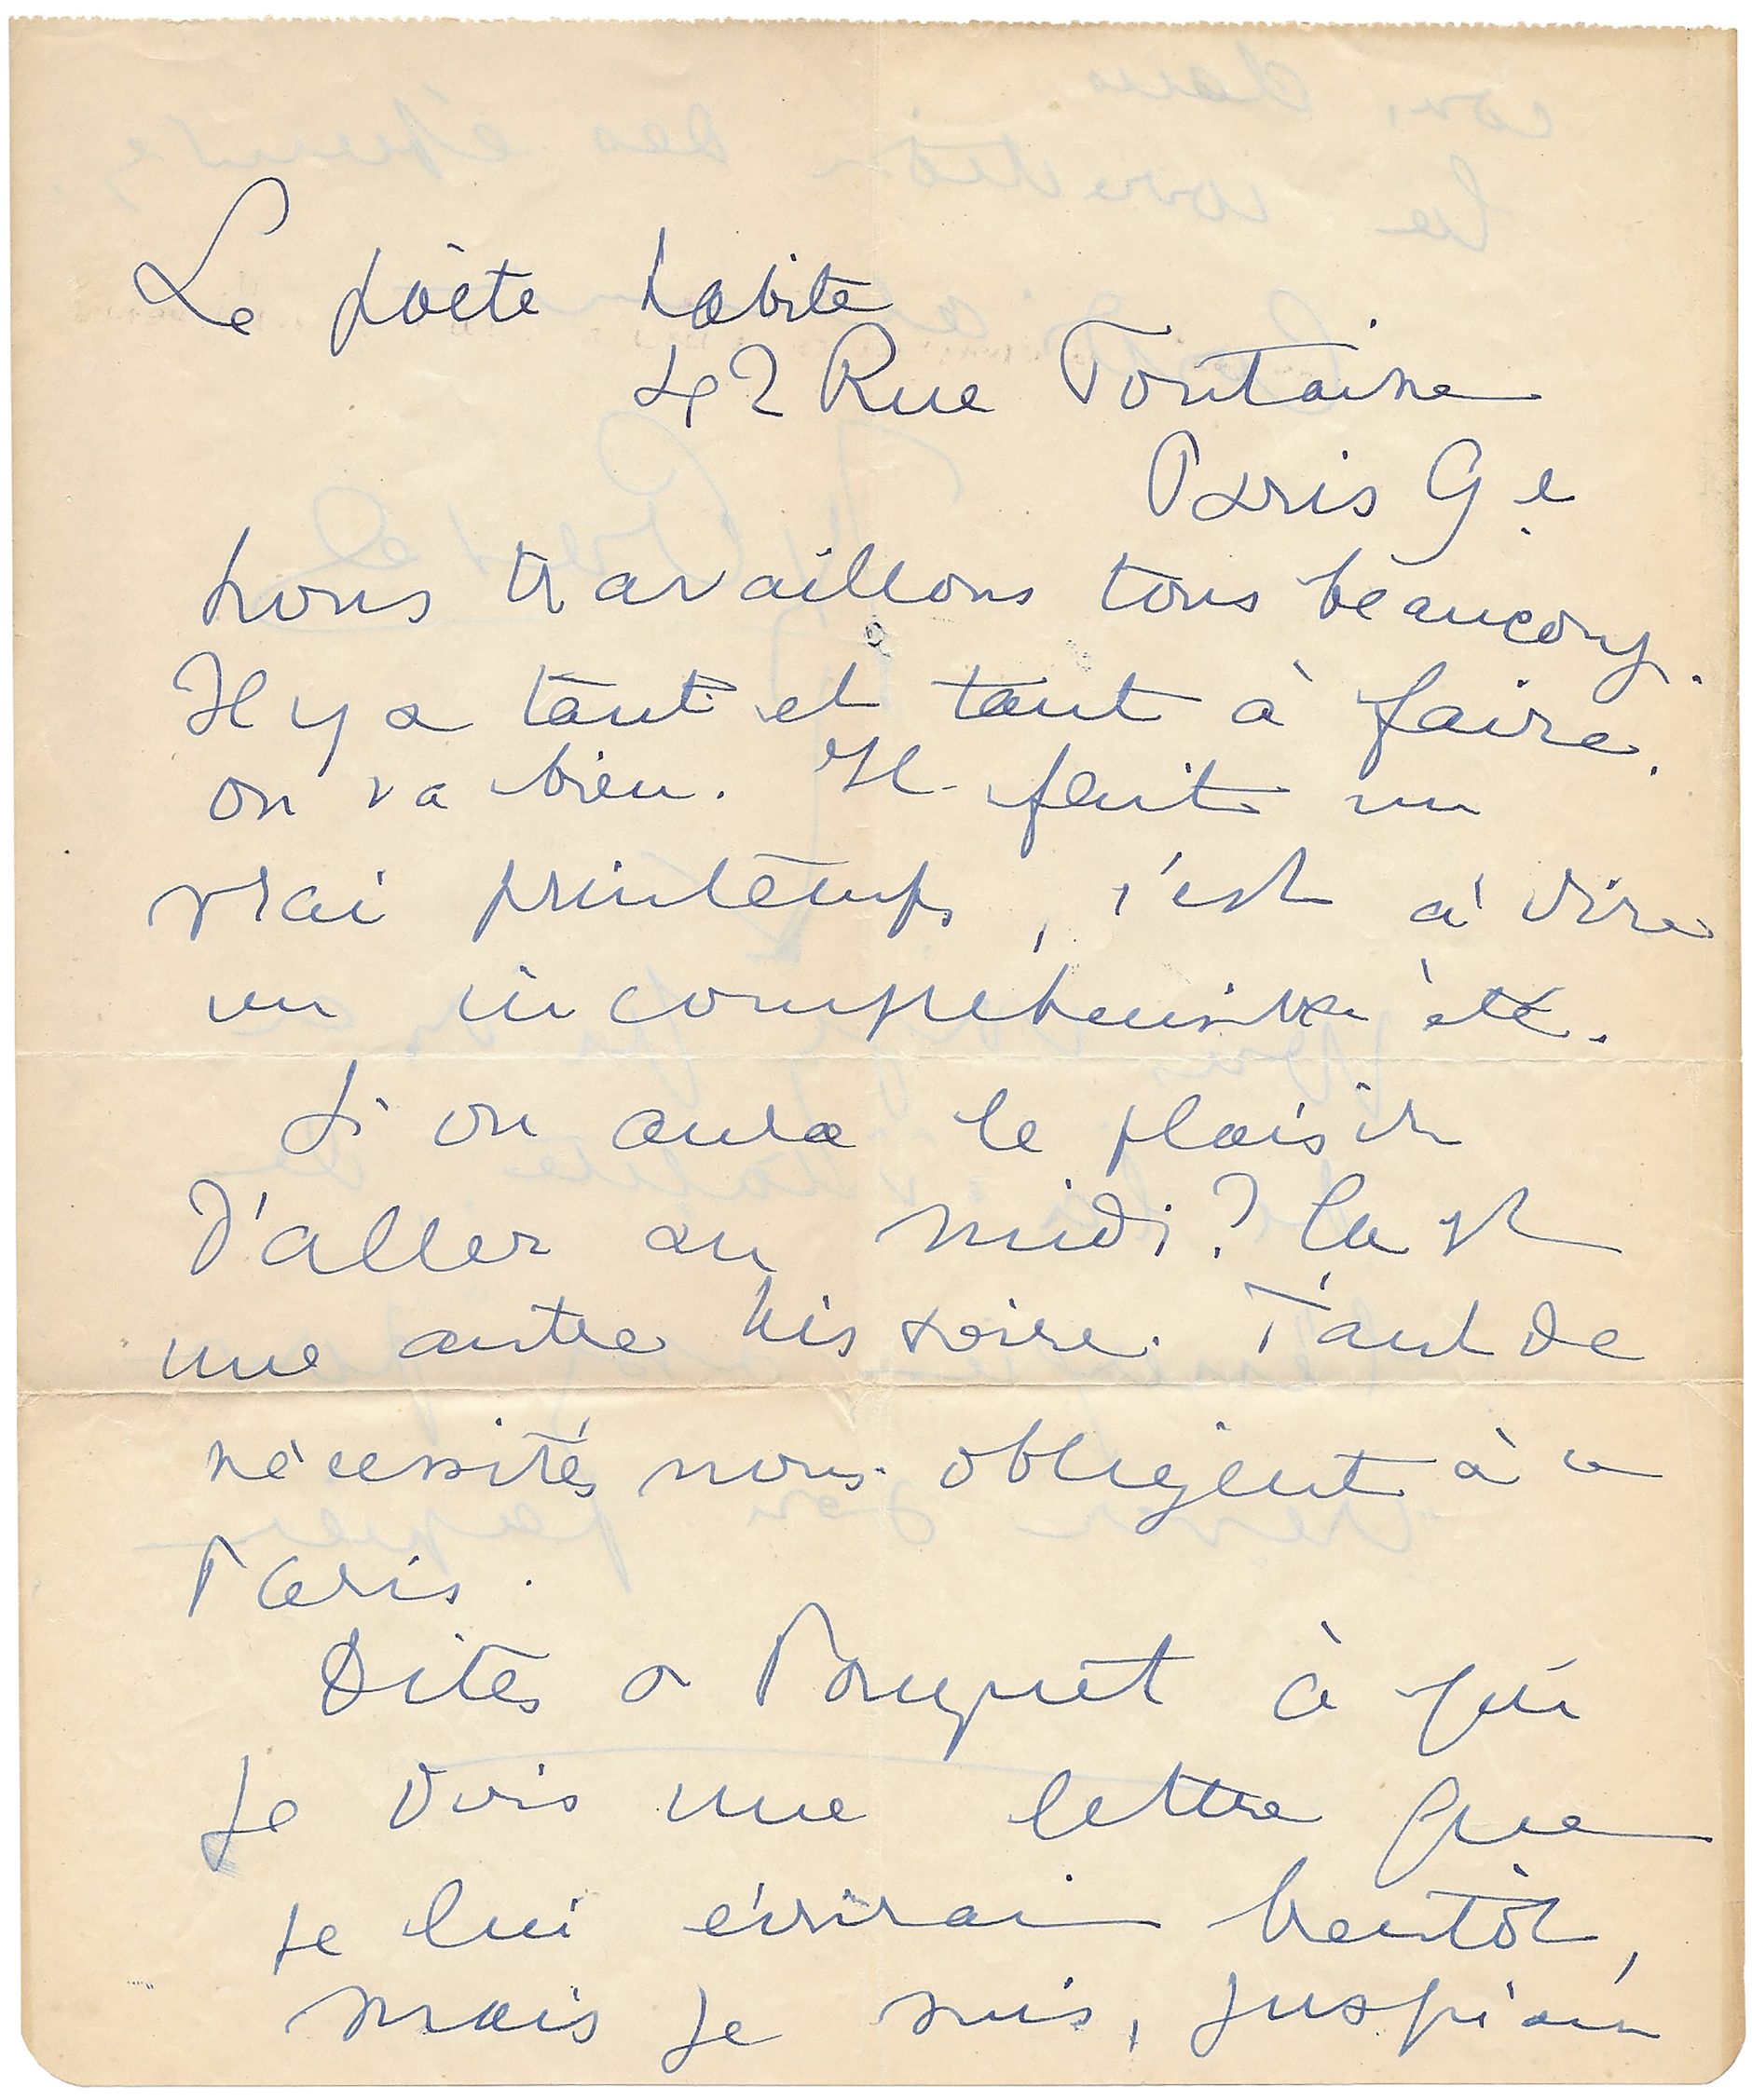 Le poète habite
42 Rue Fontaine
Paris 9e
Nous travaillons tous beaucoup.
Il y a tant et tant à faire.
on va bien. Il fait un
vrai printemps, c'est à dire
un incompréhensible été.
Si on aura le plaisir
D'aller au midi? Ça est
une autre histoire. Tant de
nécessités nous obligent à
Paris.
Dites a Pouget à qui
je dois une lettre que
je lui écrirai bientôt,
mais je suis, jusqu'au